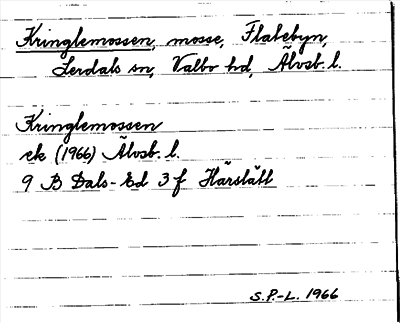 Kringlemossen, mosse, Flatebyn,
Lerdals sn, Valbo hd, Älvsb. l.
Kringlemossen
ek (1966) Älvsb. l.
9 B Dals-Ed 3 f Härslätt
S.P.-L. 1966